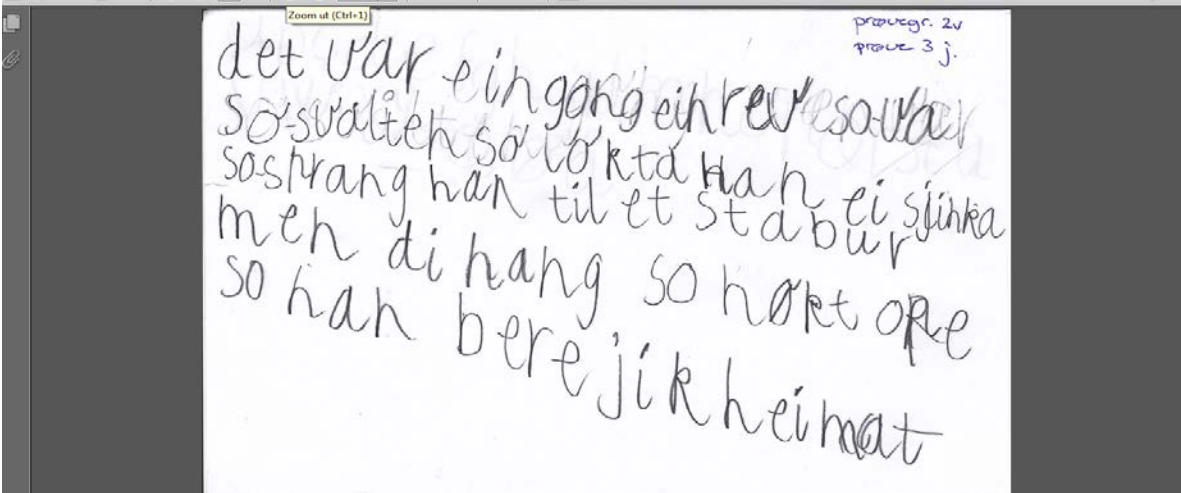 Zoom ut (Ctrl+1)
prøvegr. 2v
prøve 3 j.
det var ein gong ein rev so va
so svolten so lokta Han ei sjinka
so sprang han til et stabur
men di hang so høkt ope
so han bere jik heimat